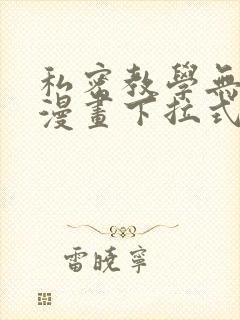 私密教學無
漫畫下拉式
雷曉寧